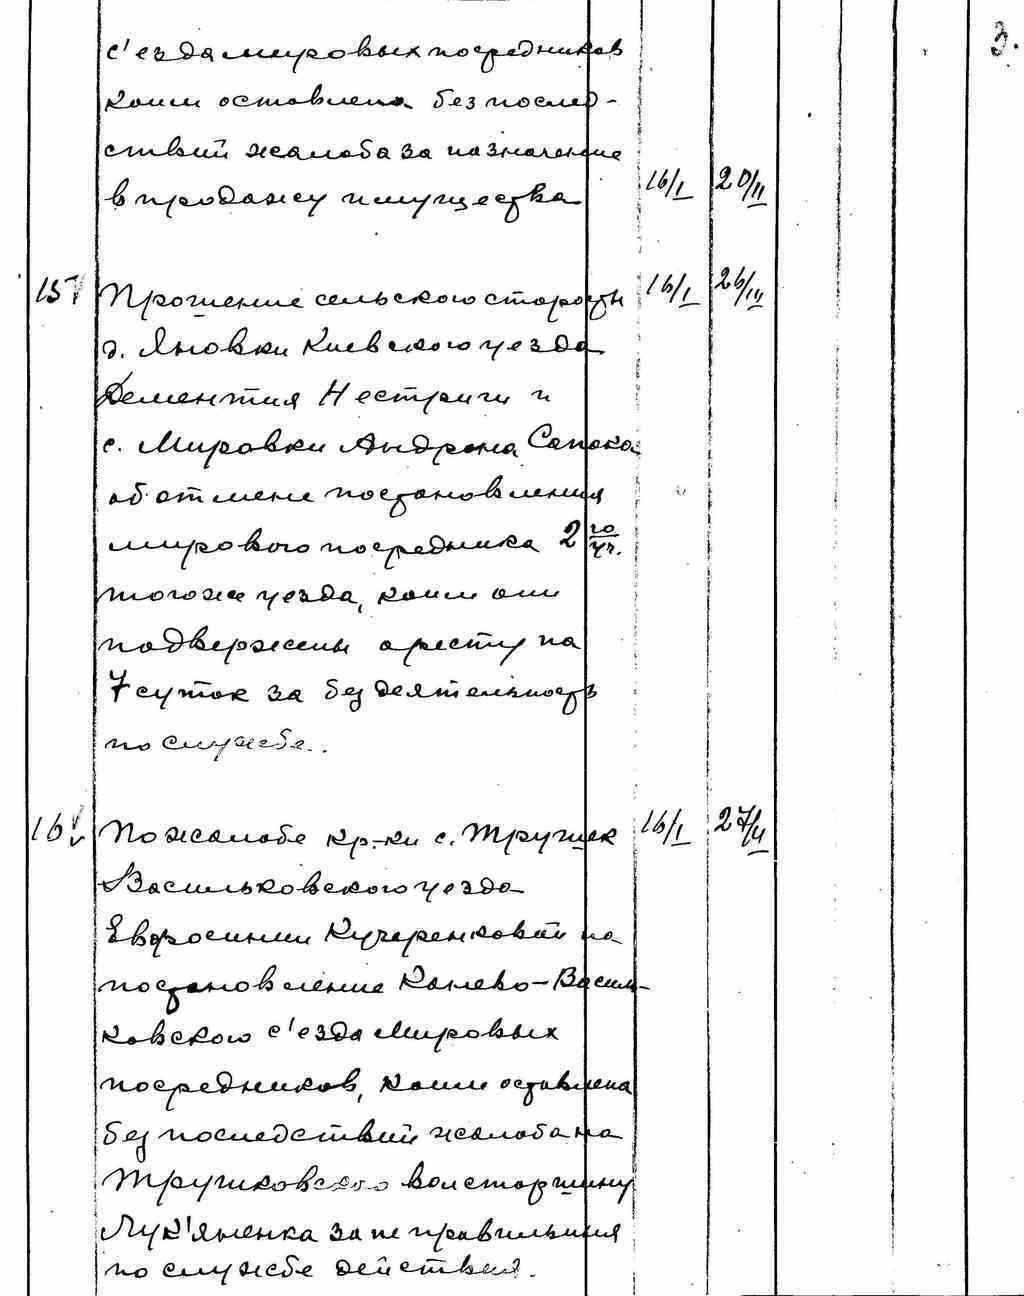 3.
с'езда мировых посредников
коим оставлена без послед-
ствий жалоба за назначение
в продажу имущества 16/I 20/II
15 Прошение сельского старосты 16/I 26/III
д. Яновки Киевского уезда
Дементия Нестриги и
с. Мировки Андрона Сапока
об отмене постановления
мирового посредника 2 го уч.
того же уезда, коим они
подвержены аресту на
7 суток за бездеятельность
по службе.
16 По жалобе кр-ки с. Трушек 16/I 27/II
Васильковского уезда
Евфросинии Кучеренковой на
постановление Канево-Василь-
ковского с'езда мировых
посредников, коим оставлена
без последствий жалоба на
Трушковского волстаршину
Лук'яненка за неправильныя
по службе действия.